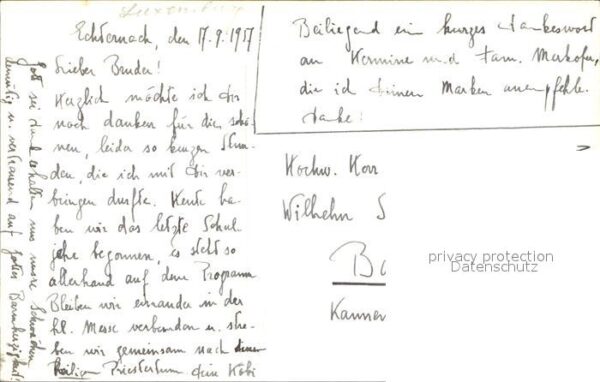 Luxemburg
Echternach, den 17.9.1957
Lieber Bruder!
Herzlich möchte ich dir
noch danken für die schö-
nen, leider so kurzen Stun-
den, die ich mit dir ver-
bringen durfte. Heute ha-
ben wir das letzte Schul-
jahr begonnen, es steht so
allerhand auf dem Programm
Bleiben wir einander in der
hl. Messe verbunden u. stre-
ben wir gemeinsam nach dem
heiligen Priestertum dein Köbi
Gott sei dank erhalten uns unsre Schwächen
demütig u. vertrauend auf Gottes Barmherzigkeit!
Beiliegend ein kurzes Dankeswort
an Hermine und Fam. Merkofer,
die ich deinem Marken anempfehle.
Danke!
Hochw. Herr
Wilhelm S
Ba
Kanner
privacy protection
Datenschutz